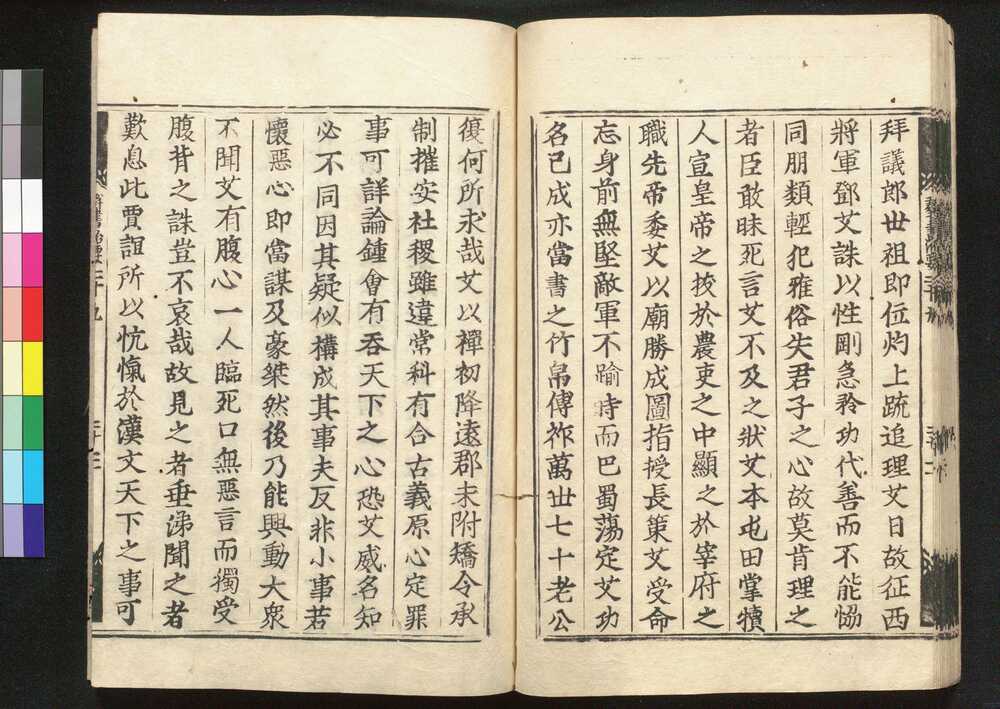 拜議郎世祖即位灼上疏追理艾曰故征西
將軍鄧艾誅以性剛急矜功伐善而不能恊
同朋類輕犯雅俗失君子之心故莫肯理之
者臣敢昧死言艾不及之狀艾本屯田掌犢
人宣皇帝之拔於農吏之中顯之於宰府之
職先帝委艾以廟勝成圖指授長策艾受命
忘身前無堅敵軍不踰時而巴蜀蕩定艾功
名已成亦當書之竹帛傳祚萬世七十老公
復何所求哉艾以禪初降遠郡未附矯令承
制摧安社稷雖違常科有合古義原心定罪
事可詳論鍾會有吞天下之心恐艾威名知
必不同因其疑似構成其事夫反非小事若
懷惡心即當謀及豪桀然後乃能興動大衆
不聞艾有腹心一人臨死口無惡言而獨受
腹背之誅豈不哀哉故見之者垂涕聞之者
歎息此賈誼所以忼愾於漢文天下之事可
群書治要二十九
三十三